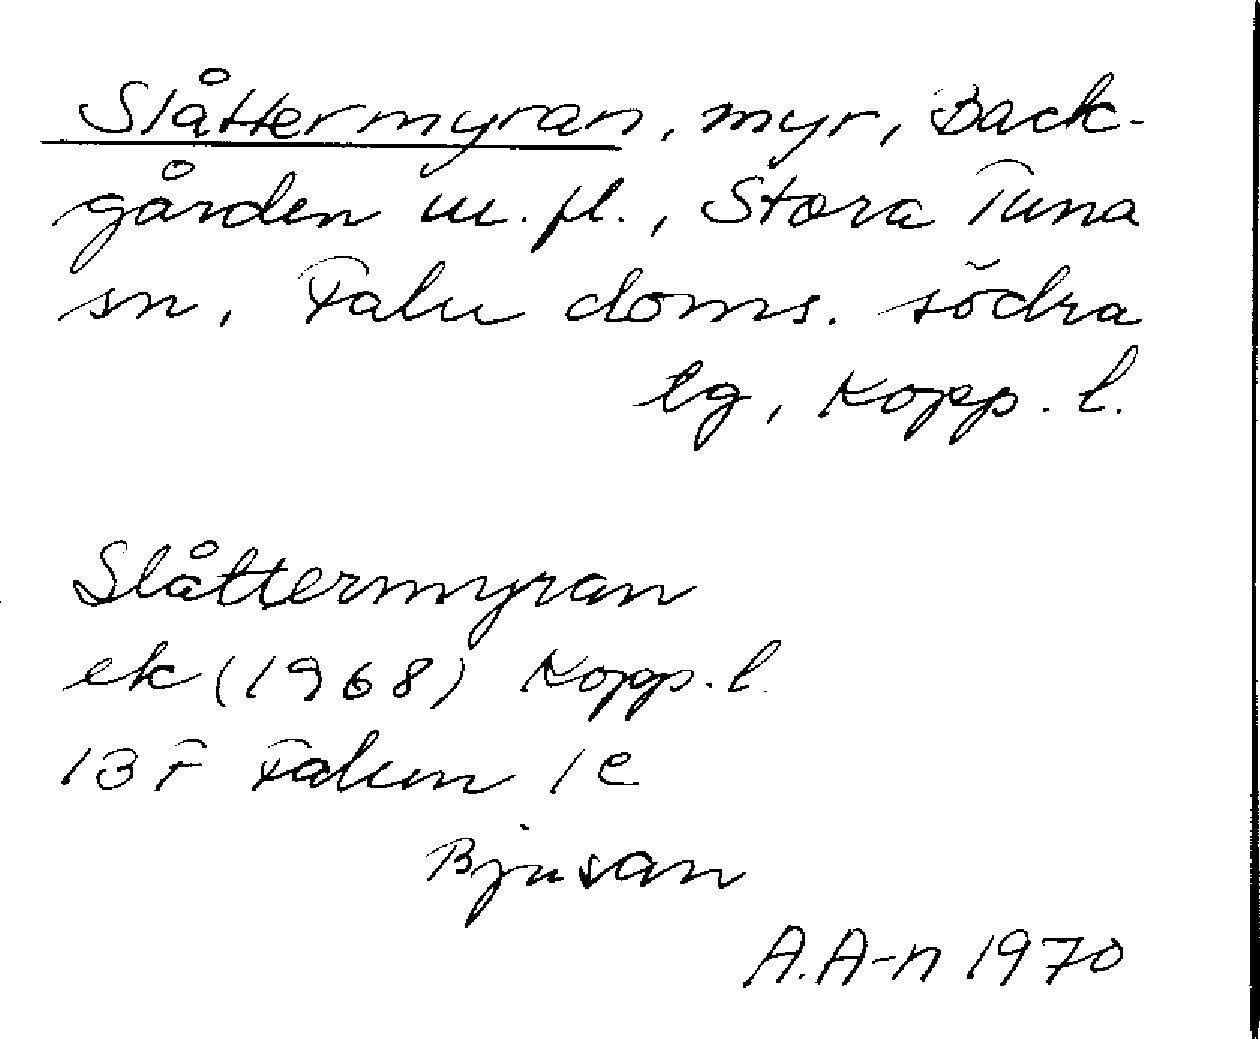 Slåttermyran, myr, Back-
gården m.fl., Stora Tuna
sn, Falu doms. södra
lg, Kopp. l.
Slåttermyran
ek (1968) Kopp. l.
13 F Falun 1e
Bjusan
A.A-n 1970